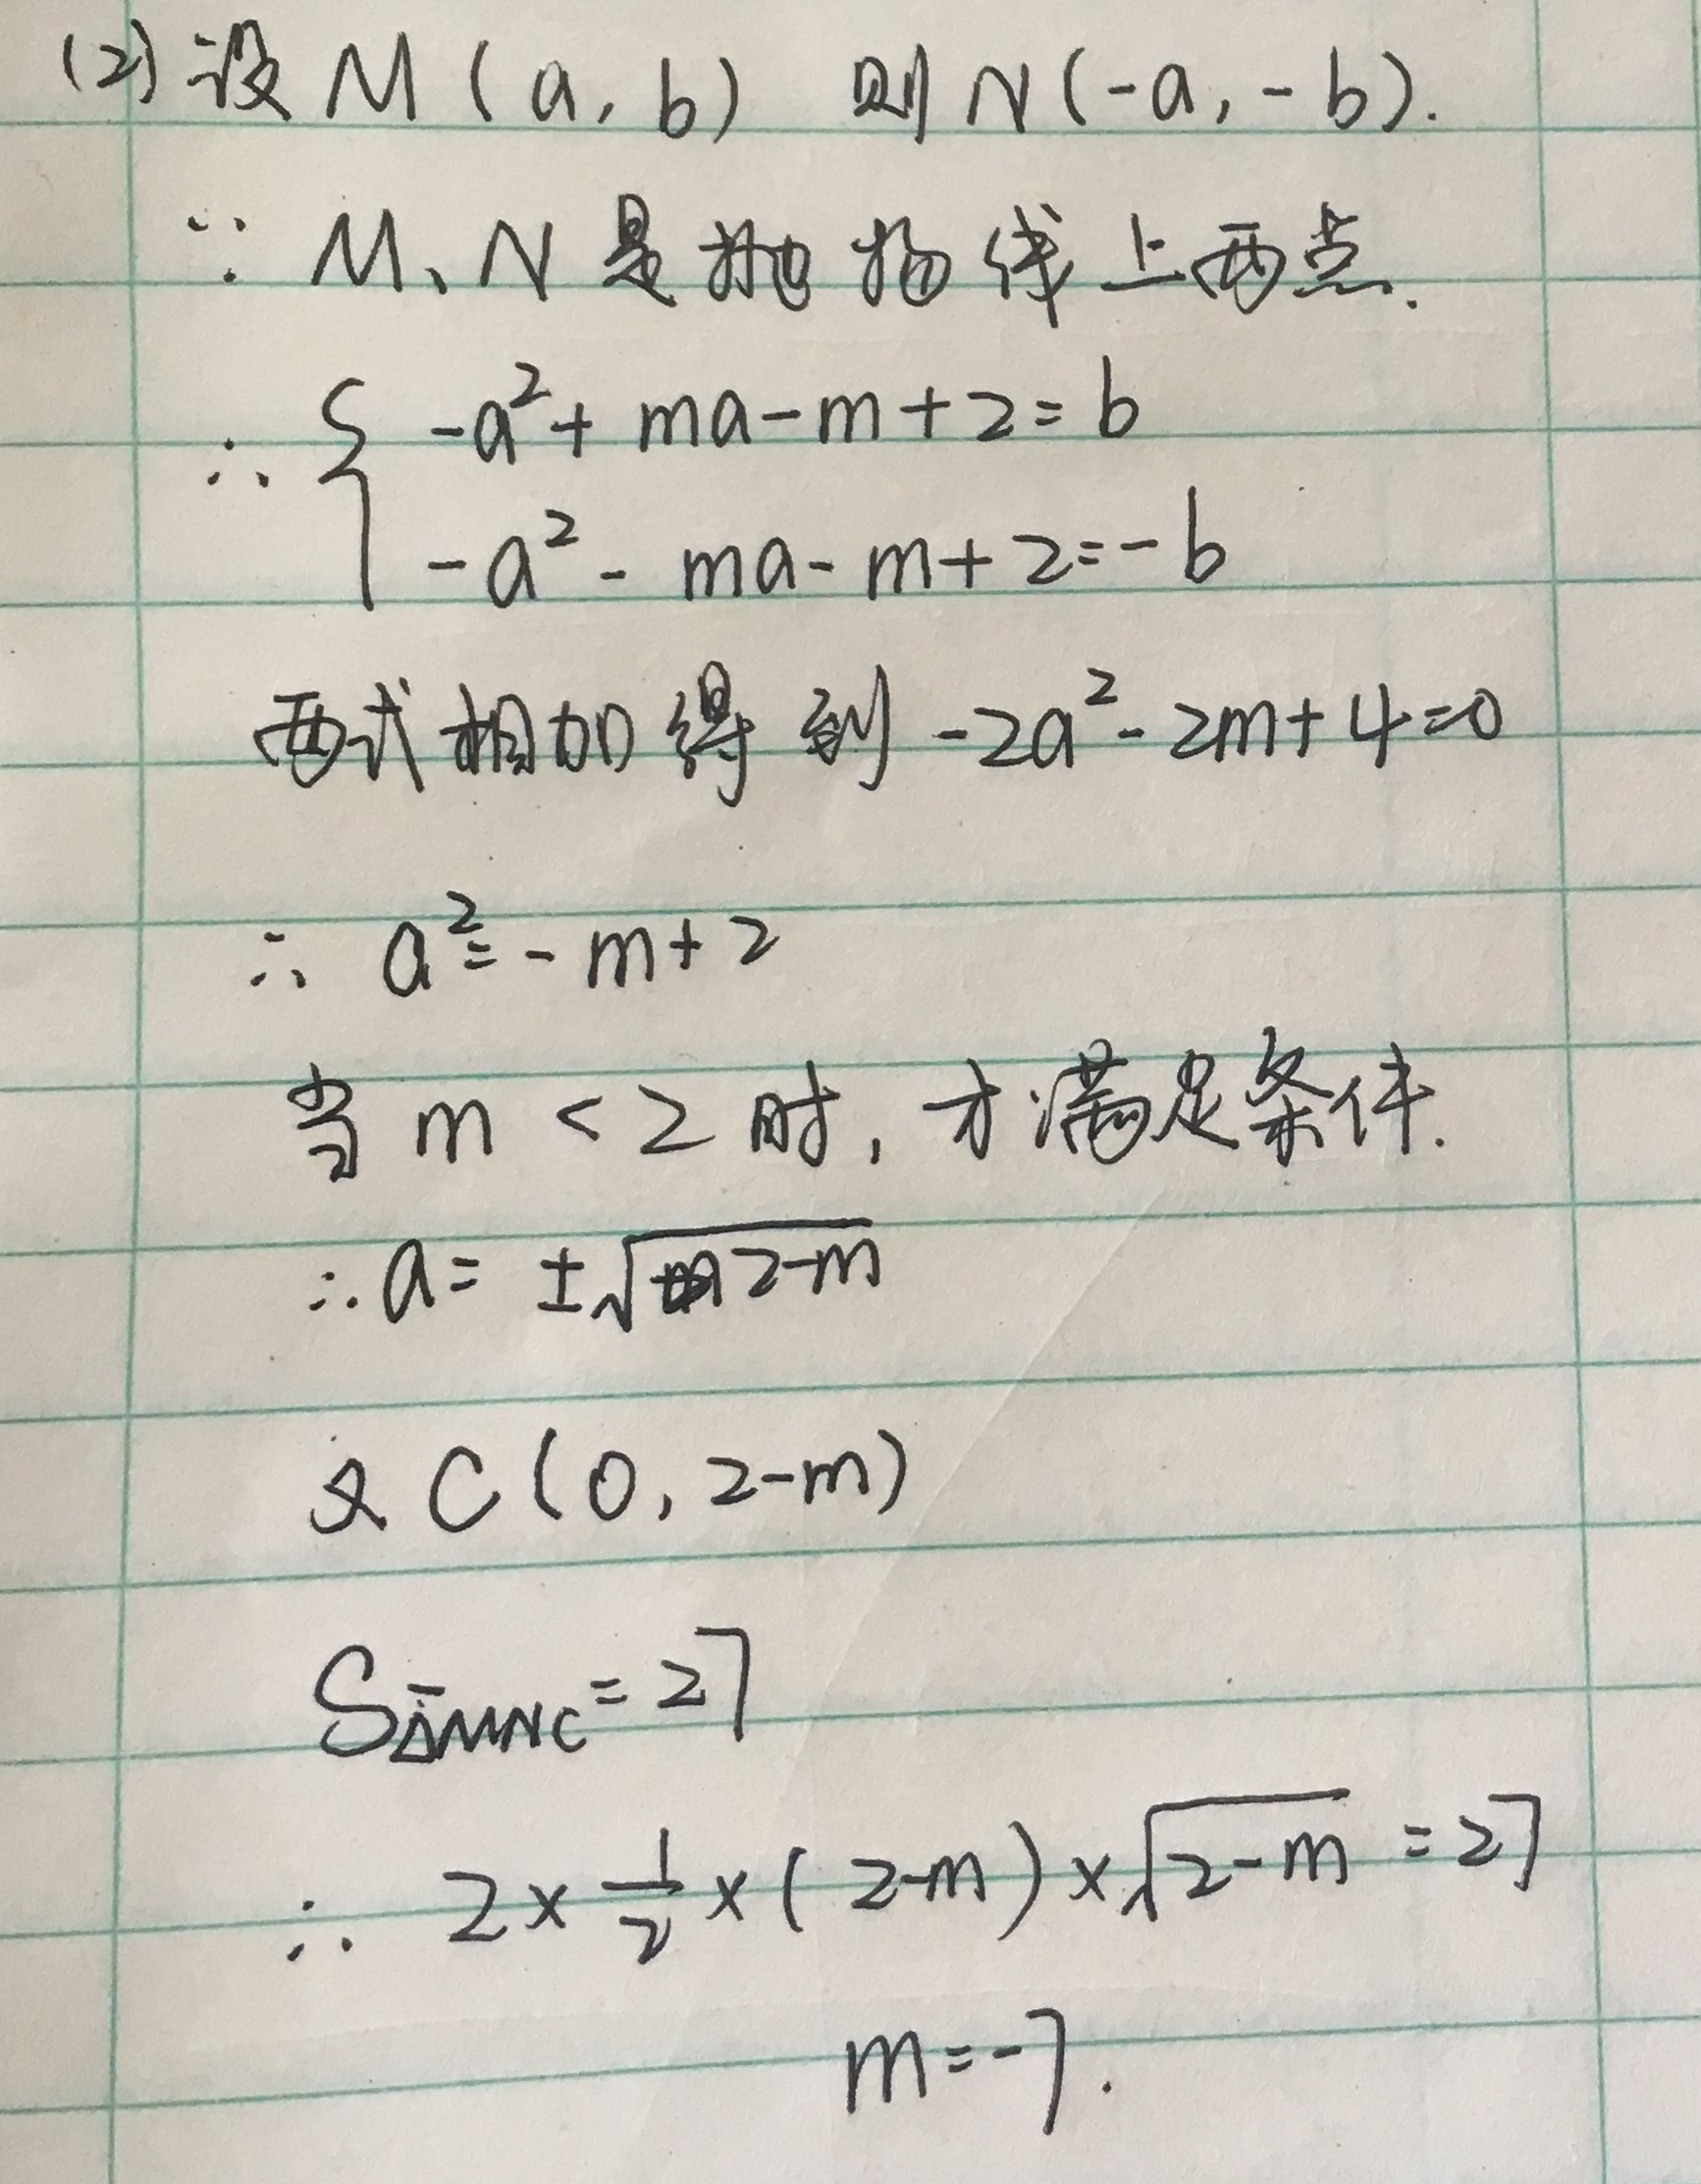 (2) 设 M(a, b) 则 N(-a, -b).
∵ M、N 是抛物线上两点.
∴ { -a²+ma-m+2=b
-a²-ma-m+2=-b
两式相加得到 -2a²-2m+4=0
∴ a²=-m+2
当 m<2 时, 才满足条件.
∴ a=±√2-m
又 C(0, 2-m)
S△MNC=27
∴ 2×1/2×(2-m)×√2-m=27
m=-7.